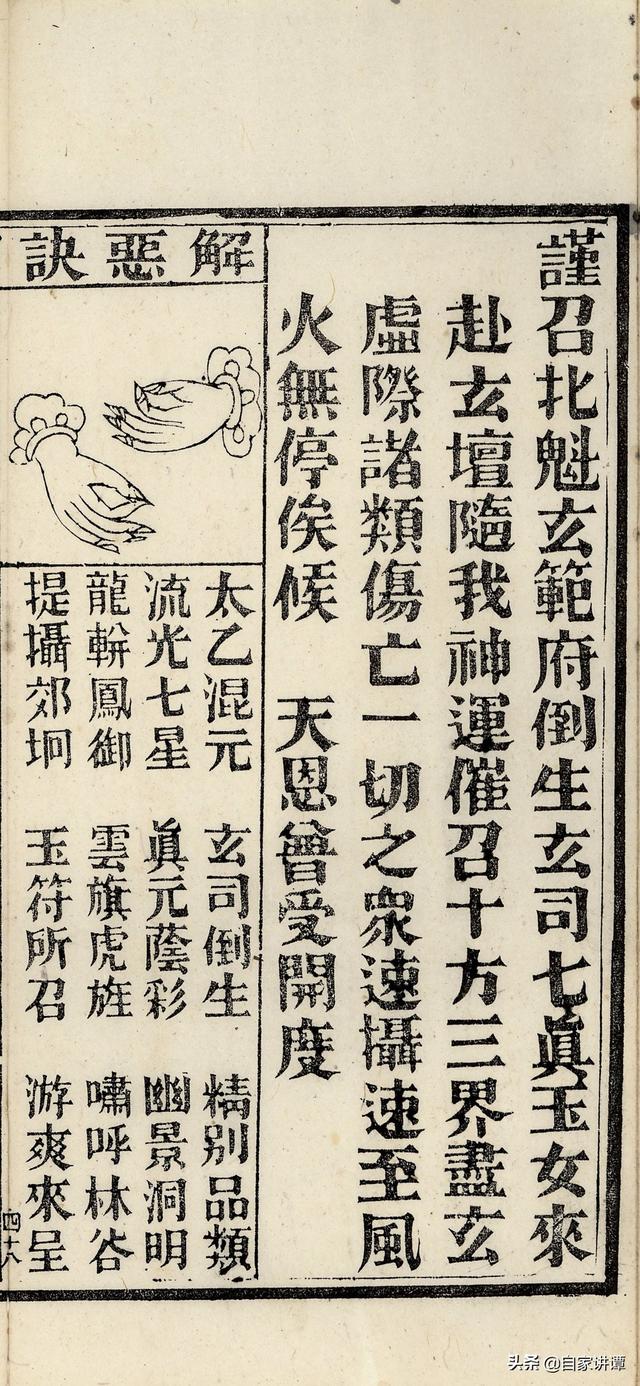 謹召北魁玄範府倒生玄司七眞玉女來
赴玄壇隨我神運催召十方三界盡玄
虛際諸類傷亡一切之衆速攝速至風
火無停俟候　天恩曾受開度
解惡訣
太乙混元　玄司倒生　精別品類
流光七星　眞元蔭彩　幽景洞明
龍軿鳳御　雲旗虎旌　嘯呼林谷
提攝郊坰　玉符所召　游爽來呈
四十八
头条 @自家讲谭